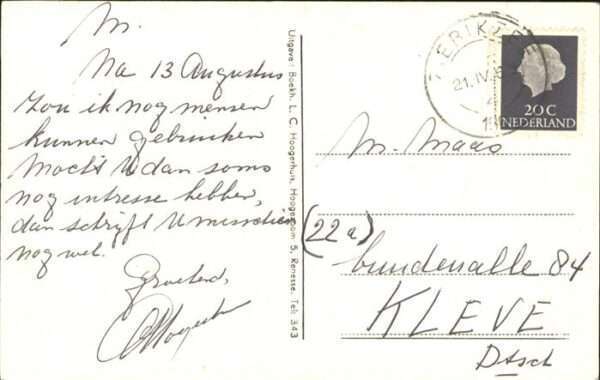 M.
Na 13 Augustus
zou ik nog mensen
kunnen gebruiken
Mocht U dan soms
nog intresse hebben,
dan schrijft U misschien
nog wel.
Groetend,
Uitgave: Boekh. L. C. Hoogerhuis, Hoogenboom 5, Renesse, Tel. 343
21.IV
20 C
NEDERLAND
M. Maas
(22a)
Lindenalle 84
KLEVE
Dtsch